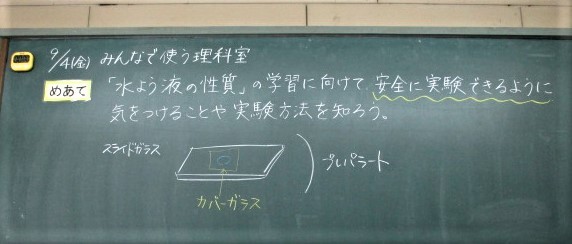 9/4(金) みんなで使う理科室
めあて 「水よう液の性質」の学習に向けて、安全に実験できるように
気をつけることや実験方法を知ろう。
スライドガラス
プレパラート
カバーガラス